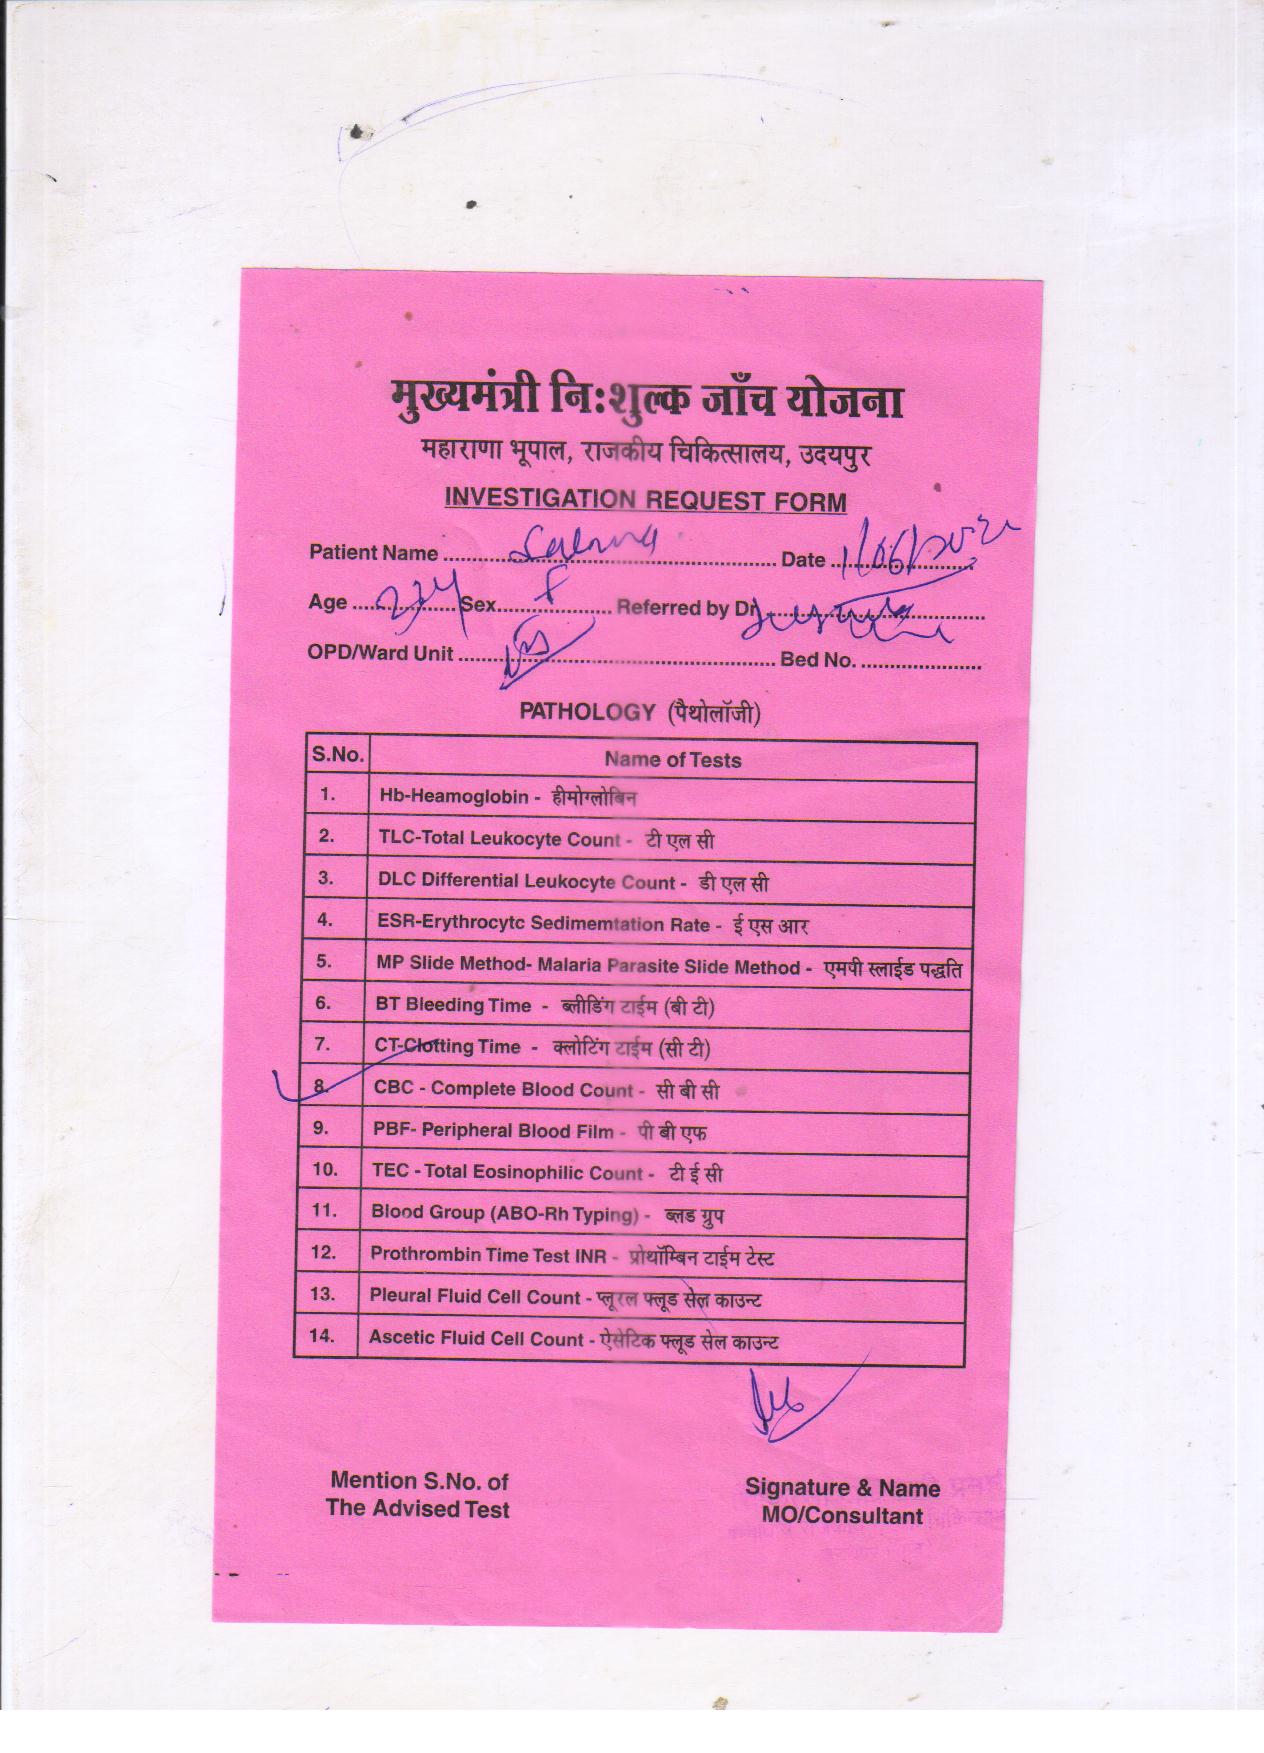 मुख्यमंत्री नि:शुल्क जाँच योजना
महाराणा भूपाल, राजकीय चिकित्सालय, उदयपुर
INVESTIGATION REQUEST FORM
Patient Name Date 1/06/2022
Age Sex F Referred by Dr.
OPD/Ward Unit Bed No.
PATHOLOGY (पैथोलॉजी)
S.No. Name of Tests
1. Hb-Heamoglobin - हीमोग्लोबिन
2. TLC-Total Leukocyte Count - टी एल सी
3. DLC Differential Leukocyte Count - डी एल सी
4. ESR-Erythrocytc Sedimemtation Rate - ई एस आर
5. MP Slide Method- Malaria Parasite Slide Method - एमपी स्लाईड पद्धति
6. BT Bleeding Time - ब्लीडिंग टाईम (बी टी)
7. CT-Clotting Time - क्लोटिंग टाईम (सी टी)
8. CBC - Complete Blood Count - सी बी सी
9. PBF- Peripheral Blood Film - पी बी एफ
10. TEC - Total Eosinophilic Count - टी ई सी
11. Blood Group (ABO-Rh Typing) - ब्लड ग्रुप
12. Prothrombin Time Test INR - प्रोथॉम्बिन टाईम टेस्ट
13. Pleural Fluid Cell Count - प्लूरल फ्लूड सेल काउन्ट
14. Ascetic Fluid Cell Count - ऐसेटिक फ्लूड सेल काउन्ट
Mention S.No. of Signature & Name
The Advised Test MO/Consultant